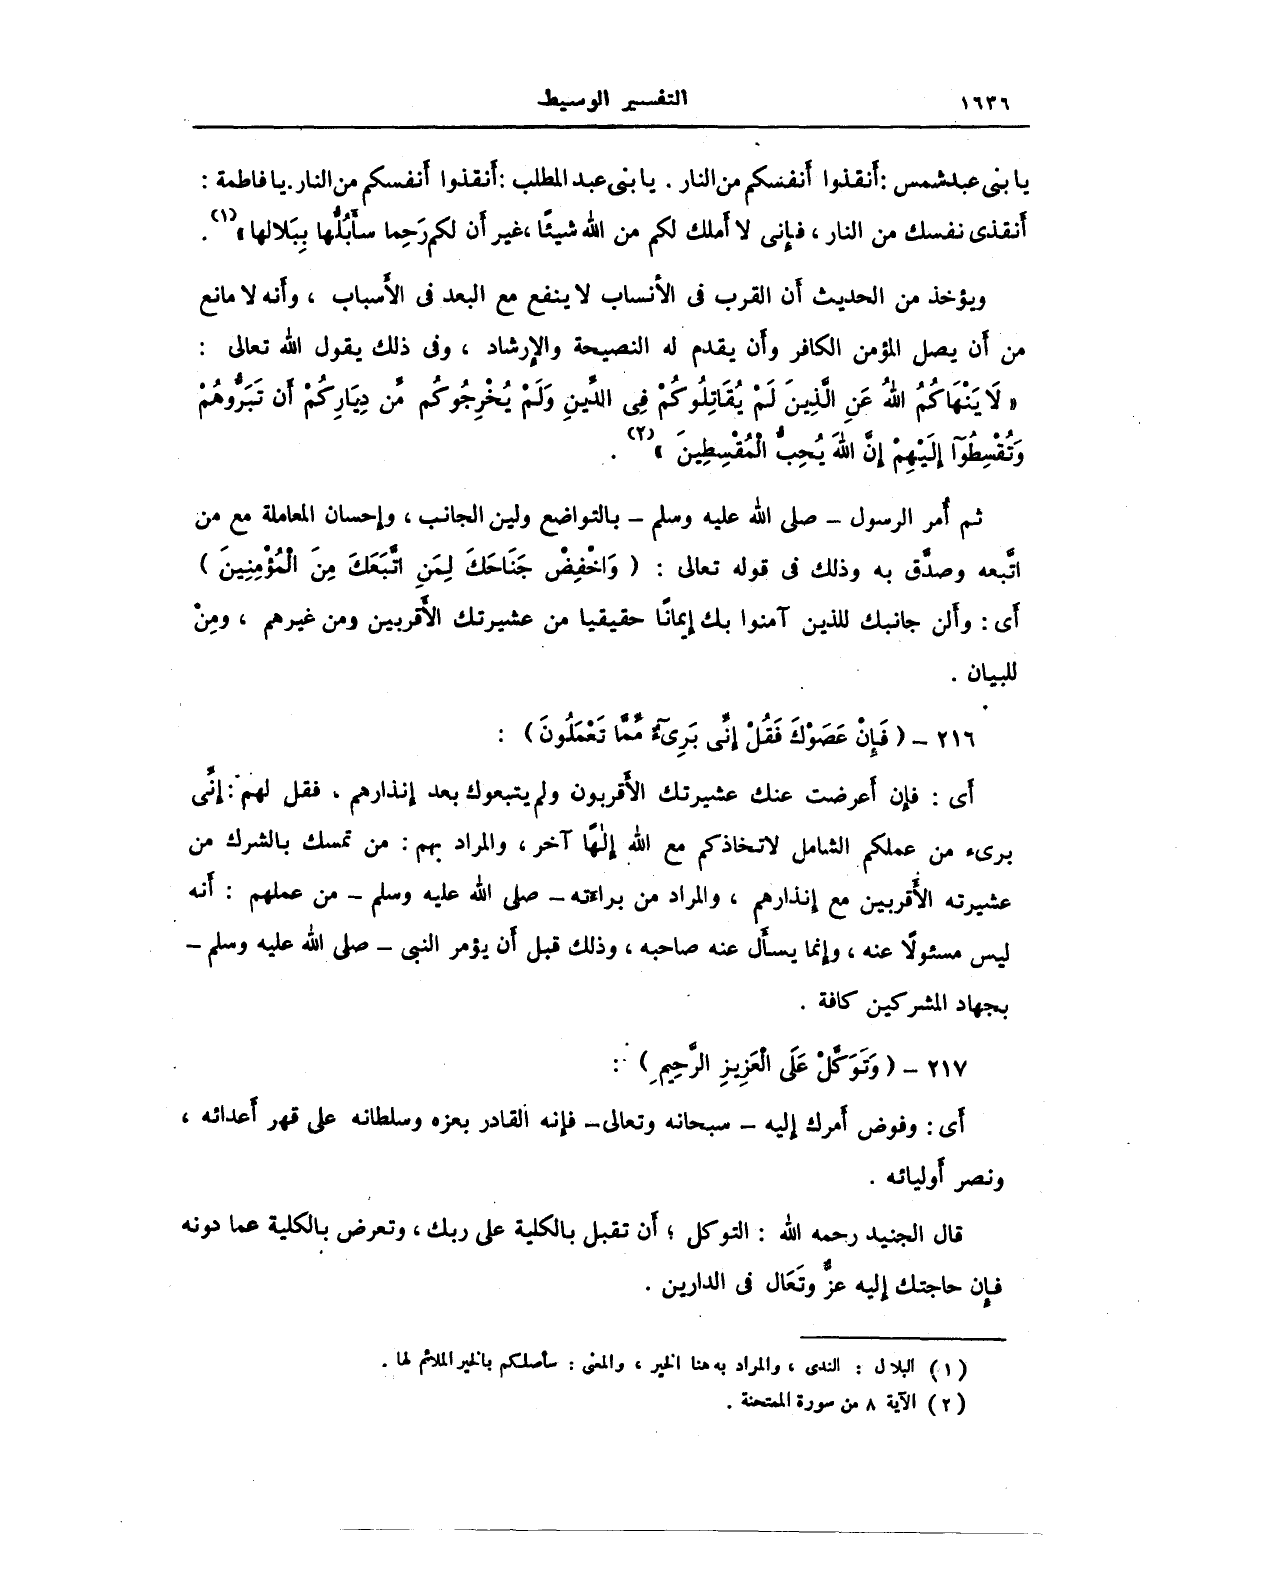 ١٦٣٦
التفسير الوسيط
يا بنى عبد شمس : أنقذوا أنفسكم من النار . يا بنى عبد المطلب : أنقذوا أنفسكم من النار . يا فاطمة :
أنقذى نفسك من النار ، فإنى لا أملك لكم من الله شيئًا ، غير أن لكم رَحِما سأَبُلُّها بِبَلالها » (١) .
ويؤخذ من الحديث أن القرب فى الأنساب لا ينفع مع البعد فى الأَسباب ، وأنه لا مانع
من أن يصل المؤمن الكافر وأن يقدم له النصيحة والإرشاد ، وفى ذلك يقول الله تعالى :
« لَا يَنْهَاكُمُ اللهُ عَنِ الَّذِينَ لَمْ يُقَاتِلُوكُمْ فِى الدِّينِ وَلَمْ يُخْرِجُوكُم مِّن دِيَارِكُمْ أَن تَبَرُّوهُمْ
وَتُقْسِطُوٓا إِلَيْهِمْ إِنَّ اللهَ يُحِبُّ الْمُقْسِطِينَ » (٢) .
ثم أُمر الرسول – صلى الله عليه وسلم – بالتواضع ولين الجانب ، وإحسان المعاملة مع من
اتَّبعه وصدَّق به وذلك فى قوله تعالى : ( وَاخْفِضْ جَنَاحَكَ لِمَنِ اتَّبَعَكَ مِنَ الْمُؤْمِنِينَ )
أى : وألن جانبك للذين آمنوا بك إيمانًا حقيقيا من عشيرتك الأَقربين ومن غيرهم ، ومِنْ
للبيان .
٢١٦ – ( فَإِنْ عَصَوْكَ فَقُلْ إِنِّى بَرِىٓءٌ مِّمَّا تَعْمَلُونَ ) :
أى : فإن أعرضت عنك عشيرتك الأَقربون ولم يتبعوك بعد إنذارهم . فقل لهم : إنِّى
برىء من عملكم الشامل لاتخاذكم مع الله إلٰهًا آخر ، والمراد بهم : من تمسك بالشرك من
عشيرته الأَقربين مع إنذارهم ، والمراد من براءته – صلى الله عليه وسلم – من عملهم : أنه
ليس مسئولًا عنه ، وإنما يسأَل عنه صاحبه ، وذلك قبل أن يؤمر النبى – صلى الله عليه وسلم –
بجهاد المشركين كافة .
٢١٧ – ( وَتَوَكَّلْ عَلَى الْعَزِيزِ الرَّحِيمِ ) :
أى : وفوض أمرك إليه – سبحانه وتعالى – فإنه القادر بعزه وسلطانه على قهر أعدائه ،
ونصر أوليائه .
قال الجنيد رحمه الله : التوكل ؛ أن تقبل بالكلية على ربك ، وتعرض بالكلية عما دونه
فإن حاجتك إليه عزَّ وتَعَال فى الدارين .
( ١ ) البلال : الندى ، والمراد به هنا الخير ، والمعنى : سأصلكم بالخير الملائم لها .
( ٢ ) الآية ٨ من سورة الممتحنة .